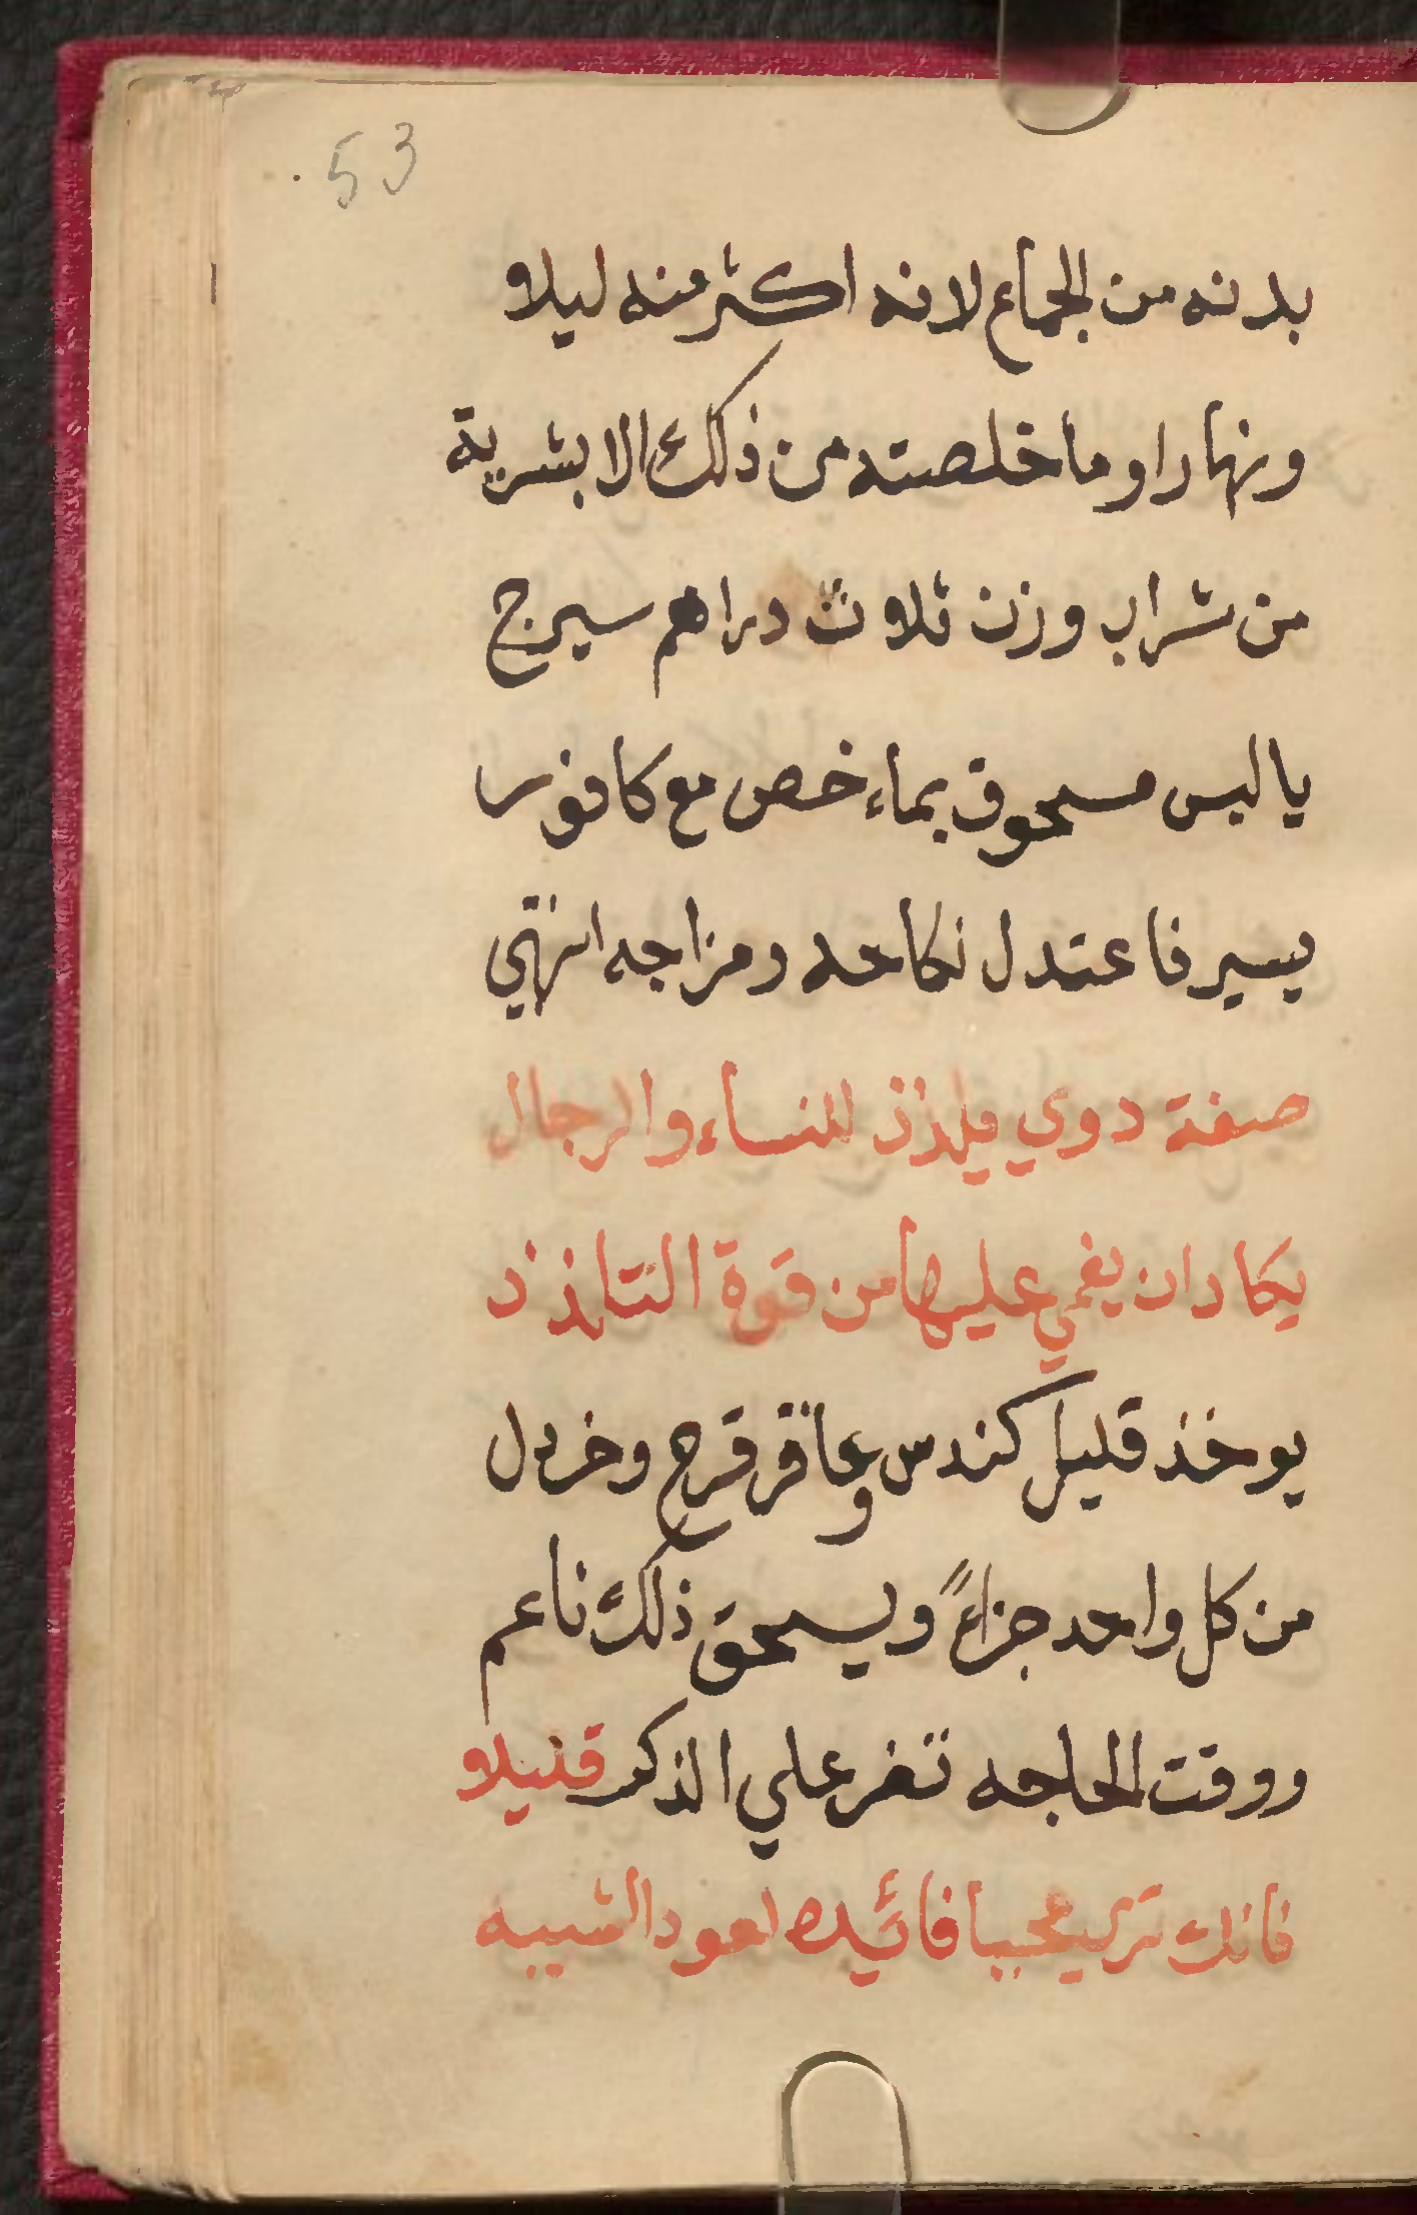 53
بدنه من الجماع لانه اكثر منه ليلا
ونهارا وما خلصته من ذلك الا بشربة
من شراب وزن ثلاث دراهم سيرج
يا لبس مسحوق بماء خص مع كافور
يسير فاعتدل نكاحه ومزاجه انتهي
صفة دوي يلذذ للنساء والرجال
يكاد ان يغمي عليها من قوة التلذذ
يوخذ قليل كندس وعاقر قرح وخردل
من كل واحد جزاءً ويسحق ذلك ناعم
ووقت الحاجه تغر علي الذكر قليلا
فانك تري عجبا فائيده لعود الشيبه